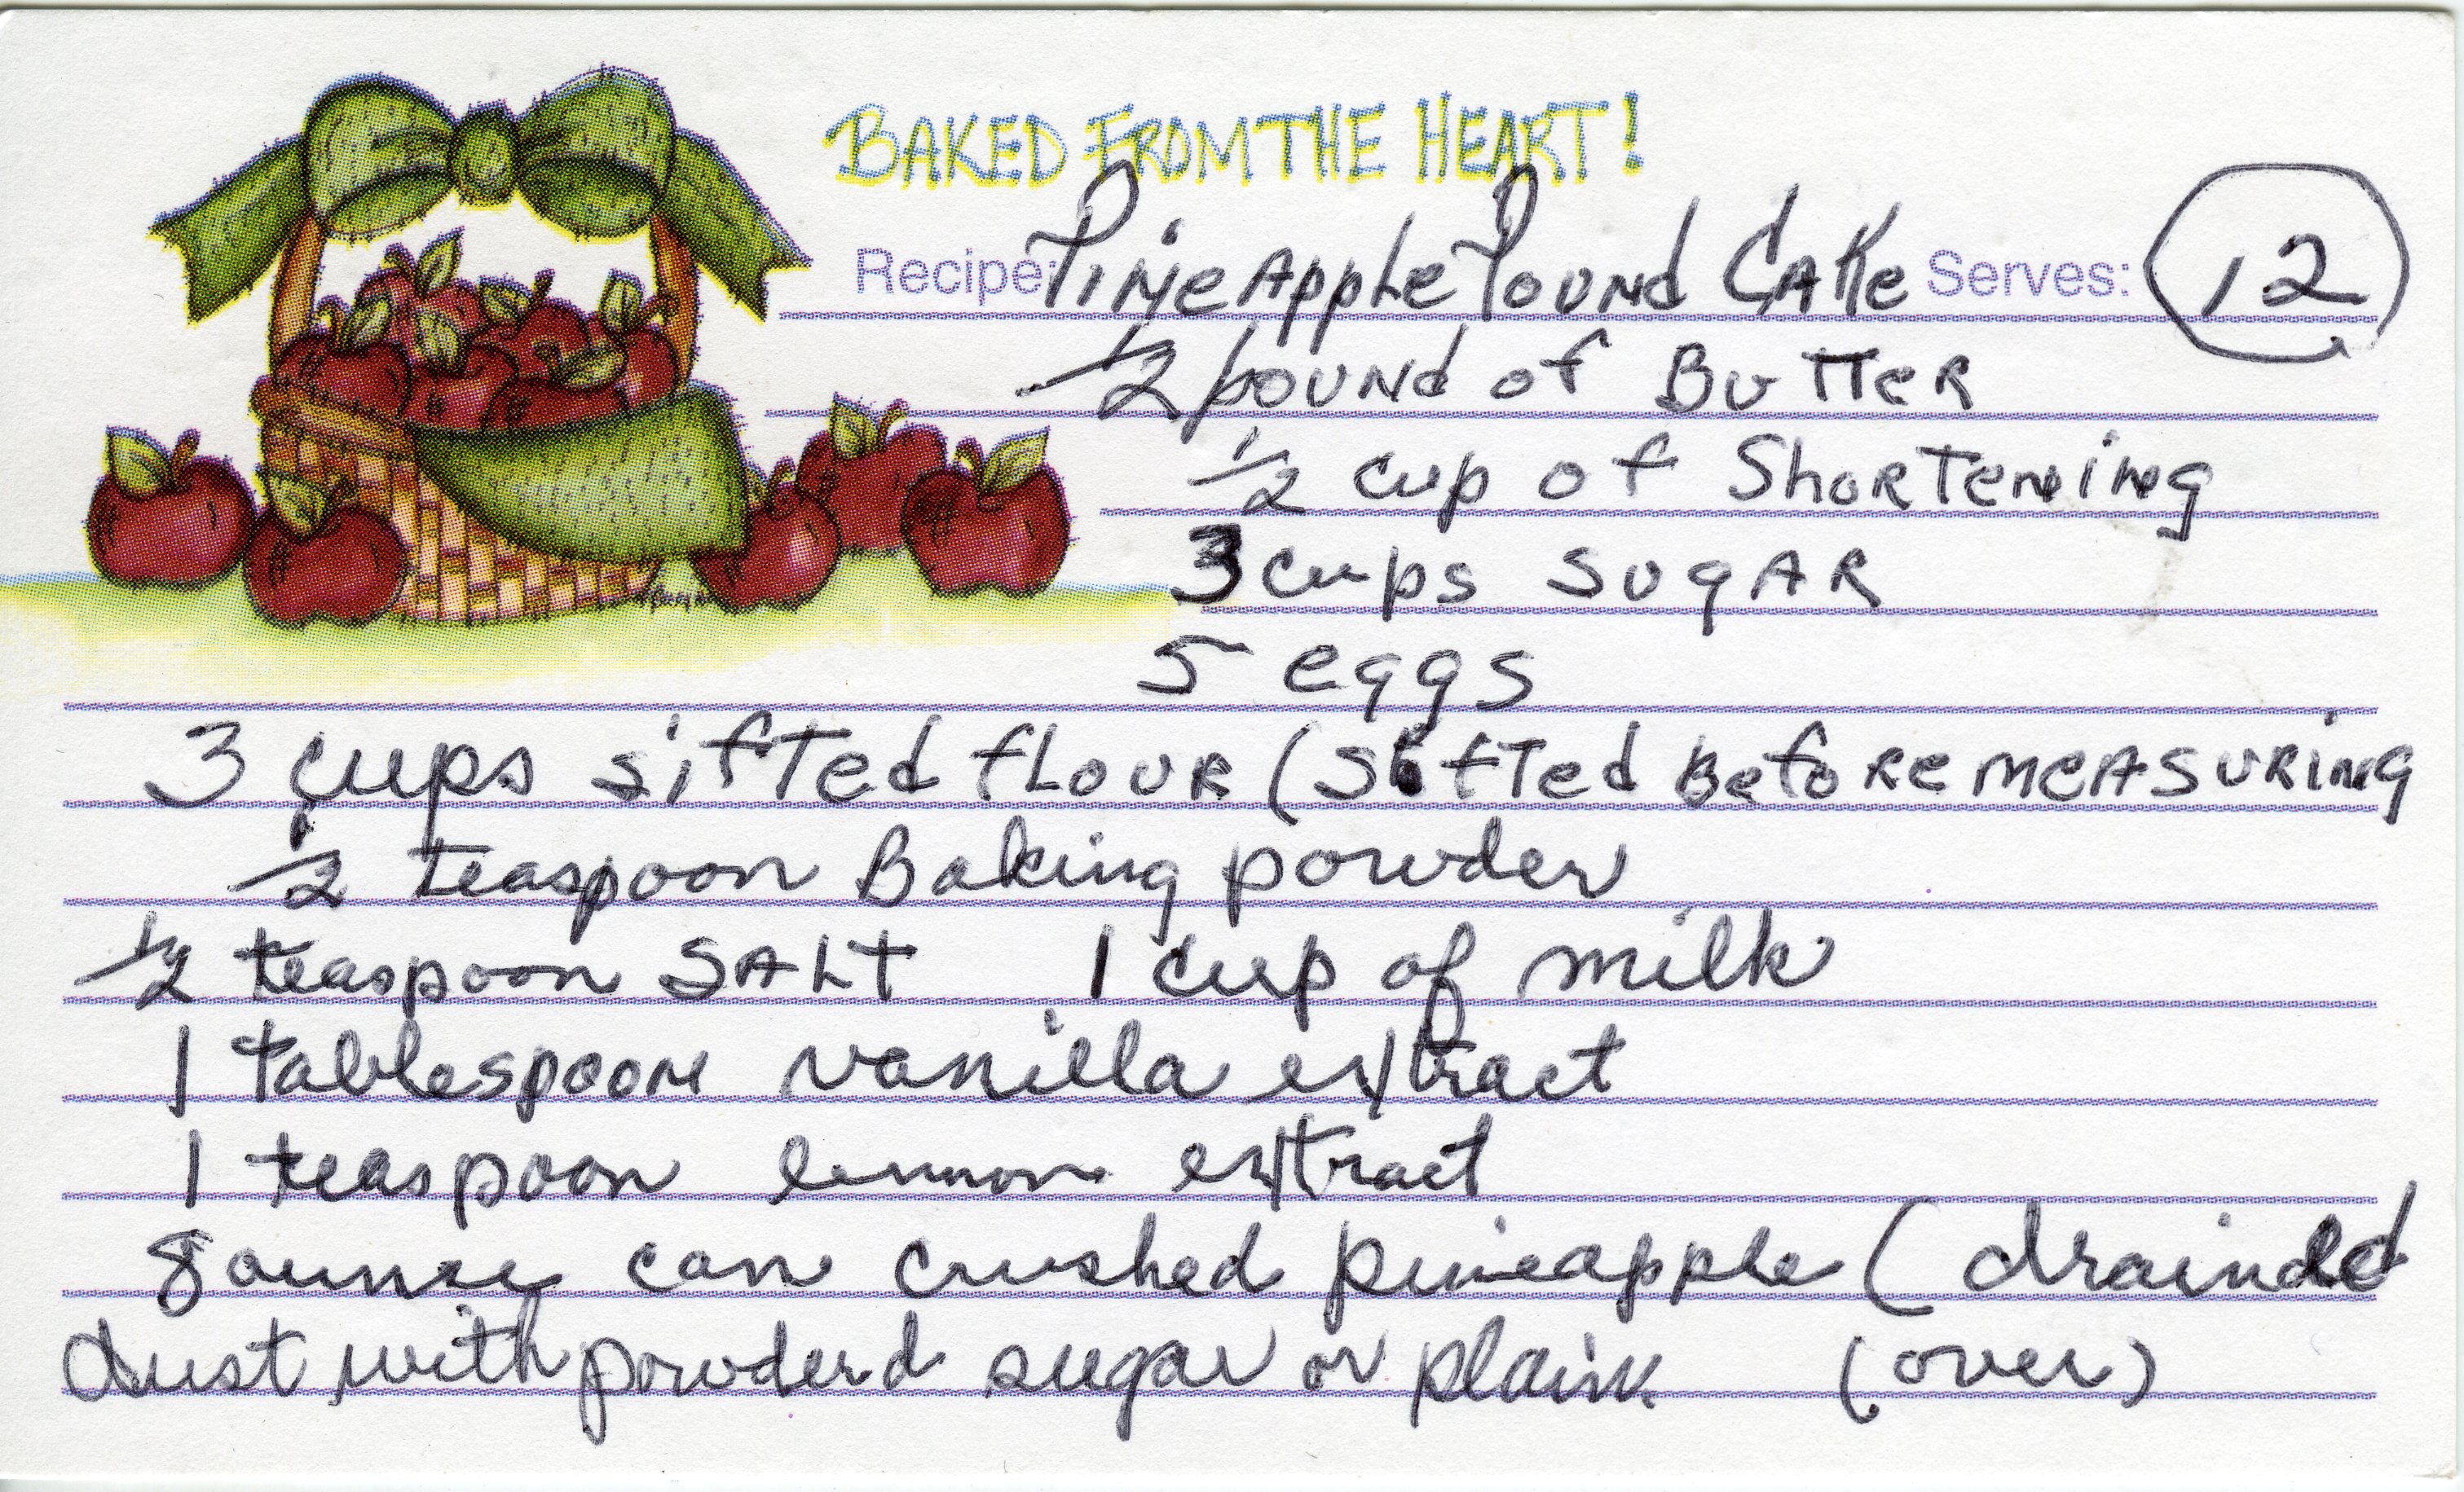 BAKED FROM THE HEART!
Recipe: PiNeApple Pound CAKe Serves: 12
1/2 pound of BuTTeR
1/2 cup of ShorTening
3 cups SugAR
5 eggs
3 cups sifTed fLouR (SifTed BefoRe meASuRing
1/2 teaspoon Baking powder
1/2 teaspoon SALT 1 cup of milk
1 tablespoon vanilla extract
1 teaspoon lemon extract
8 ounce can crushed pineapple (drained
dust with powderd sugar or plain (over)